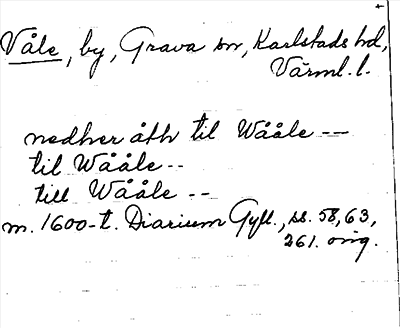 Våle, by, Grava sn, Karlstads hd,
Värml. l.
nedher åth til Wååle --
til Wååle --
till Wååle --
m. 1600-t. Diarium Gyll., ss. 58, 63,
261. orig.